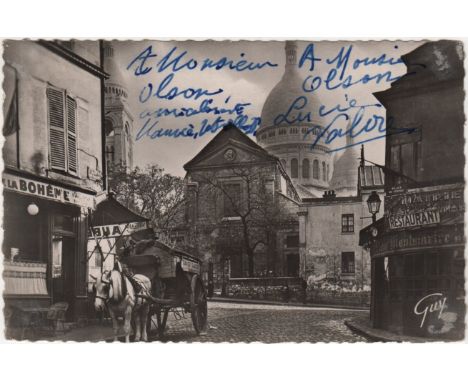 A Monsieur
Olson,
amicalement
Maurice Utrillo, V,
A Monsieur
Olson
Lucie
Valore
LA BOHÈME
RESTAURANT
Guy